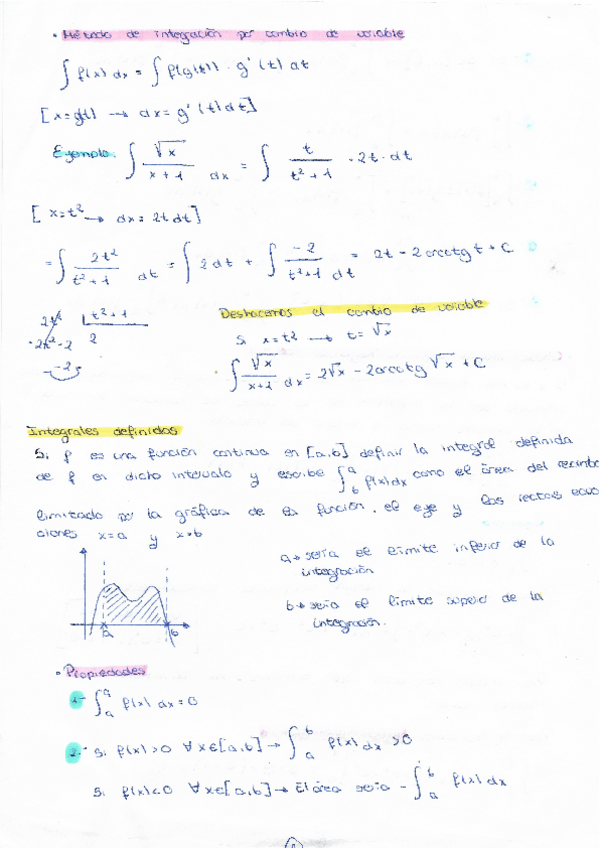 · Método de integración por cambio de variable
∫ f(x) dx = ∫ f(g(t)) · g'(t) dt
[x = g(t) → dx = g'(t) dt]
Ejemplo: ∫ √x / (x + 1) dx = ∫ t / (t² + 1) · 2t · dt
[x = t² → dx = 2t dt]
= ∫ 2t² / (t² + 1) dt = ∫ 2 dt + ∫ -2 / (t² + 1) dt = 2t - 2 arctg t + C
2t² | t² + 1
-2t² - 2 2
- 2
Deshacemos el cambio de variable
Si x = t² → t = √x
∫ √x / (x + 1) dx = 2√x - 2 arctg √x + C
Integrales definidas
Si f es una función continua en [a, b] definir la integral definida
de f en dicho intervalo y escribe ∫ₐᵇ f(x) dx como el área del recinto
limitado por la gráfica de la función, el eje y las rectas ecua
ciones x = a y x = b
a → sería el límite inferior de la
integración
b → sería el límite superior de la
integración.
a b
· Propiedades
1- ∫ₐᵃ f(x) dx = 0
2- Si f(x) > 0 ∀x∈[a, b] → ∫ₐᵇ f(x) dx > 0
Si f(x) < 0 ∀x∈[a, b] → El área sería - ∫ₐᵇ f(x) dx